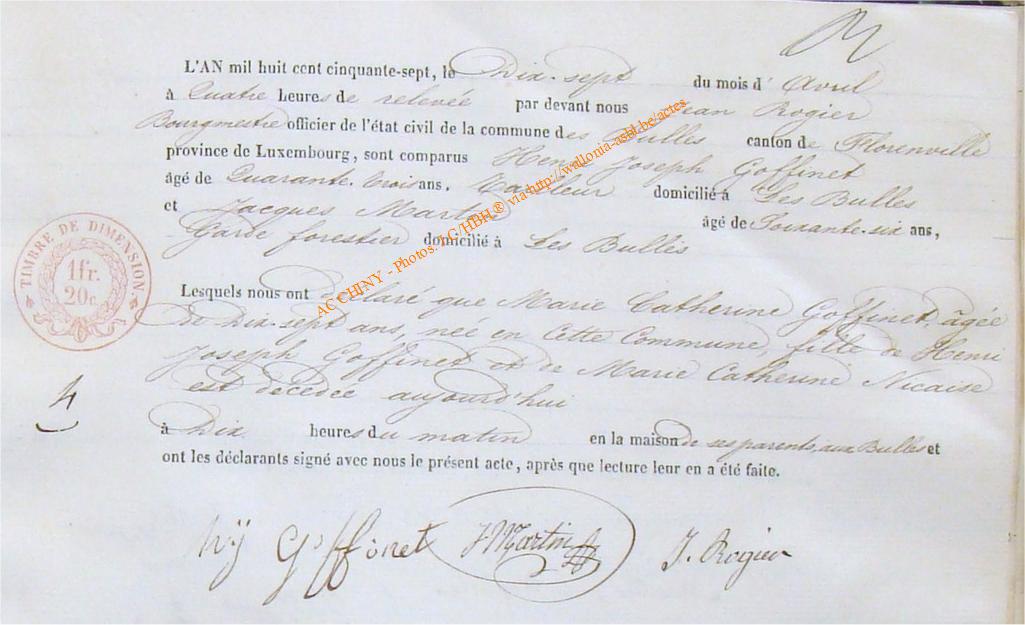 L'AN mil huit cent cinquante-sept, le Dix-sept du mois d' Avril
à Quatre heures de relevée par devant nous Jean Rogier
Bourgmestre officier de l'état civil de la commune des Bulles canton de Florenville
province de Luxembourg, sont comparus Henri Joseph Goffinet
âgé de Quarante-trois ans, Tailleur domicilié à Les Bulles
et Jacques Martin âgé de Soixante-six ans,
Garde forestier domicilié à Les Bulles
Lesquels nous ont déclaré que Marie Catherine Goffinet, agée
de Dix-sept ans, née en cette Commune, fille de Henri
Joseph Goffinet et de Marie Catherine Nicaise
est décédée aujourd'hui
à Dix heures du matin en la maison de ses parents, aux Bulles et
ont les déclarants signé avec nous le présent acte, après que lecture leur en a été faite.
Goffinet J Martin J. Rogier
TIMBRE DE DIMENSION.
1 fr.
20 c.
4
AC CHINY - Photos: LC/HBH ® via http://wallonia-asbl.be/actes